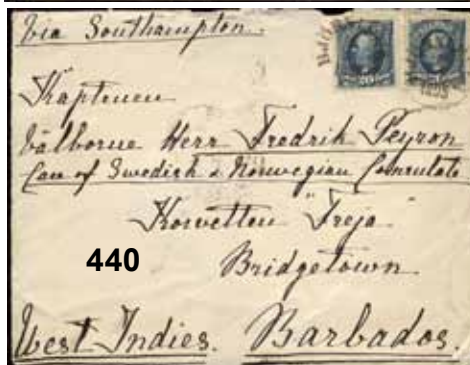 Via Southampton.
Kaptenen
Välborne Herr Fredrik Peyron
Care of Swedish & Norwegian Consulate
Korvetten "Freja"
440
Bridgetown
West Indies. Barbados.